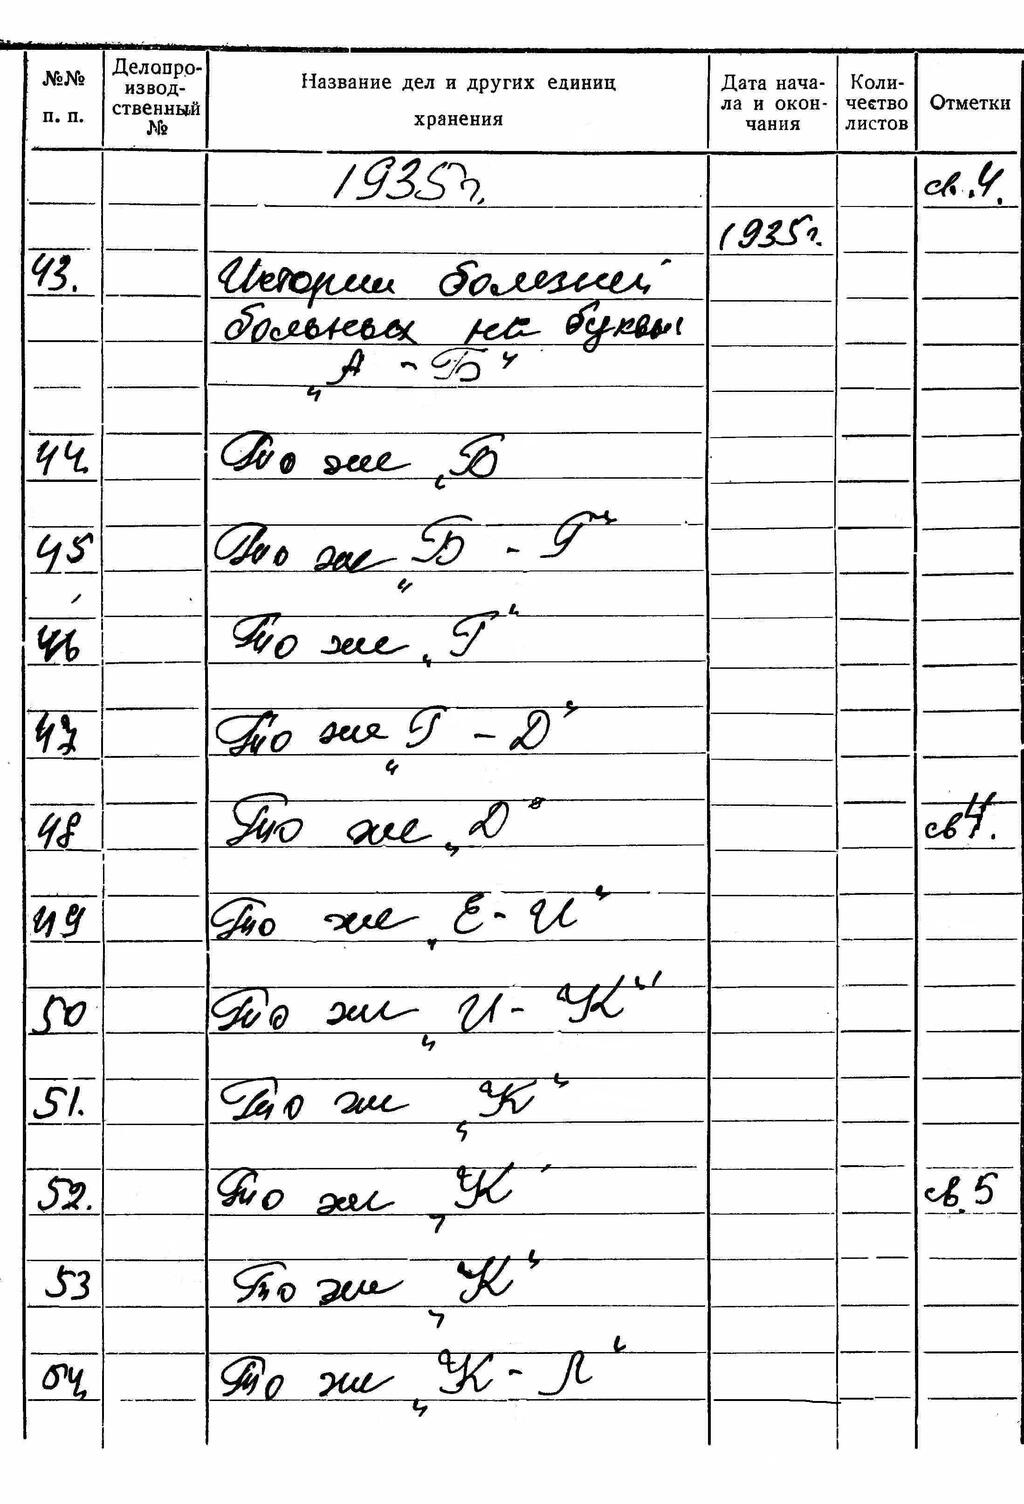 №№ п. п. Делопроизводственный № Название дел и других единиц хранения Дата начала и окончания Количество листов Отметки
1935 г. св. 4.
1935 г.
43. Истории болезней
больных на буквы
„А - Б"
44. То же „Б
45 То же „Б - Г"
46 То же „Г"
47 То же „Г - Д"
48 То же „Д" св 4.
49 То же „Е - И"
50 То же „И - К"
51. То же „К"
52. То же „К" св. 5
53 То же „К"
54 То же „К - Л"